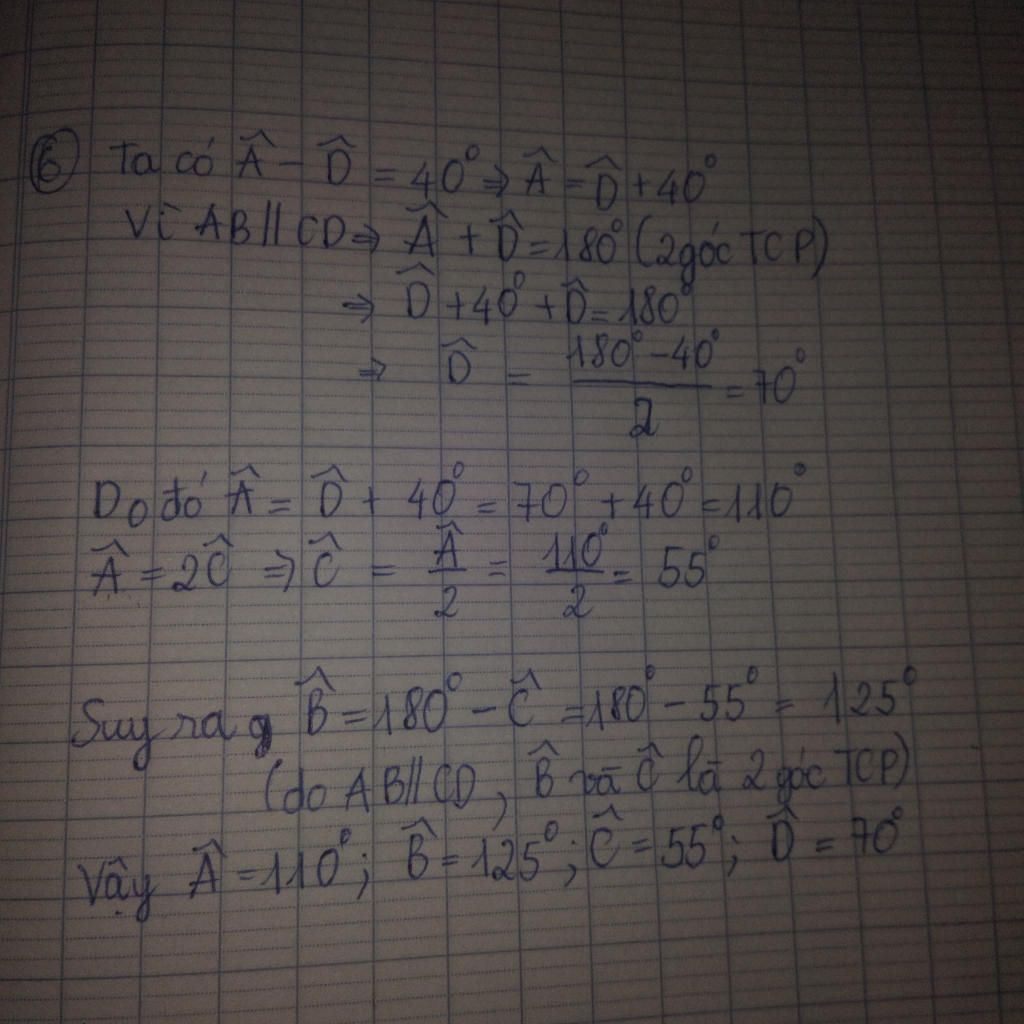 ⑥ Ta có Â - D̂ = 40° ⇒ Â = D̂ + 40°
Vì AB // CD ⇒ Â + D̂ = 180° (2 góc TCP)
⇒ D̂ + 40° + D̂ = 180°
⇒ D̂ = (180° - 40°)/2 = 70°
Do đó Â = D̂ + 40° = 70° + 40° = 110°
Â = 2Ĉ ⇒ Ĉ = Â/2 = 110°/2 = 55°
Suy ra B̂ = 180° - Ĉ = 180° - 55° = 125°
(do AB // CD, B̂ và Ĉ là 2 góc TCP)
Vậy Â = 110°; B̂ = 125°; Ĉ = 55°; D̂ = 70°